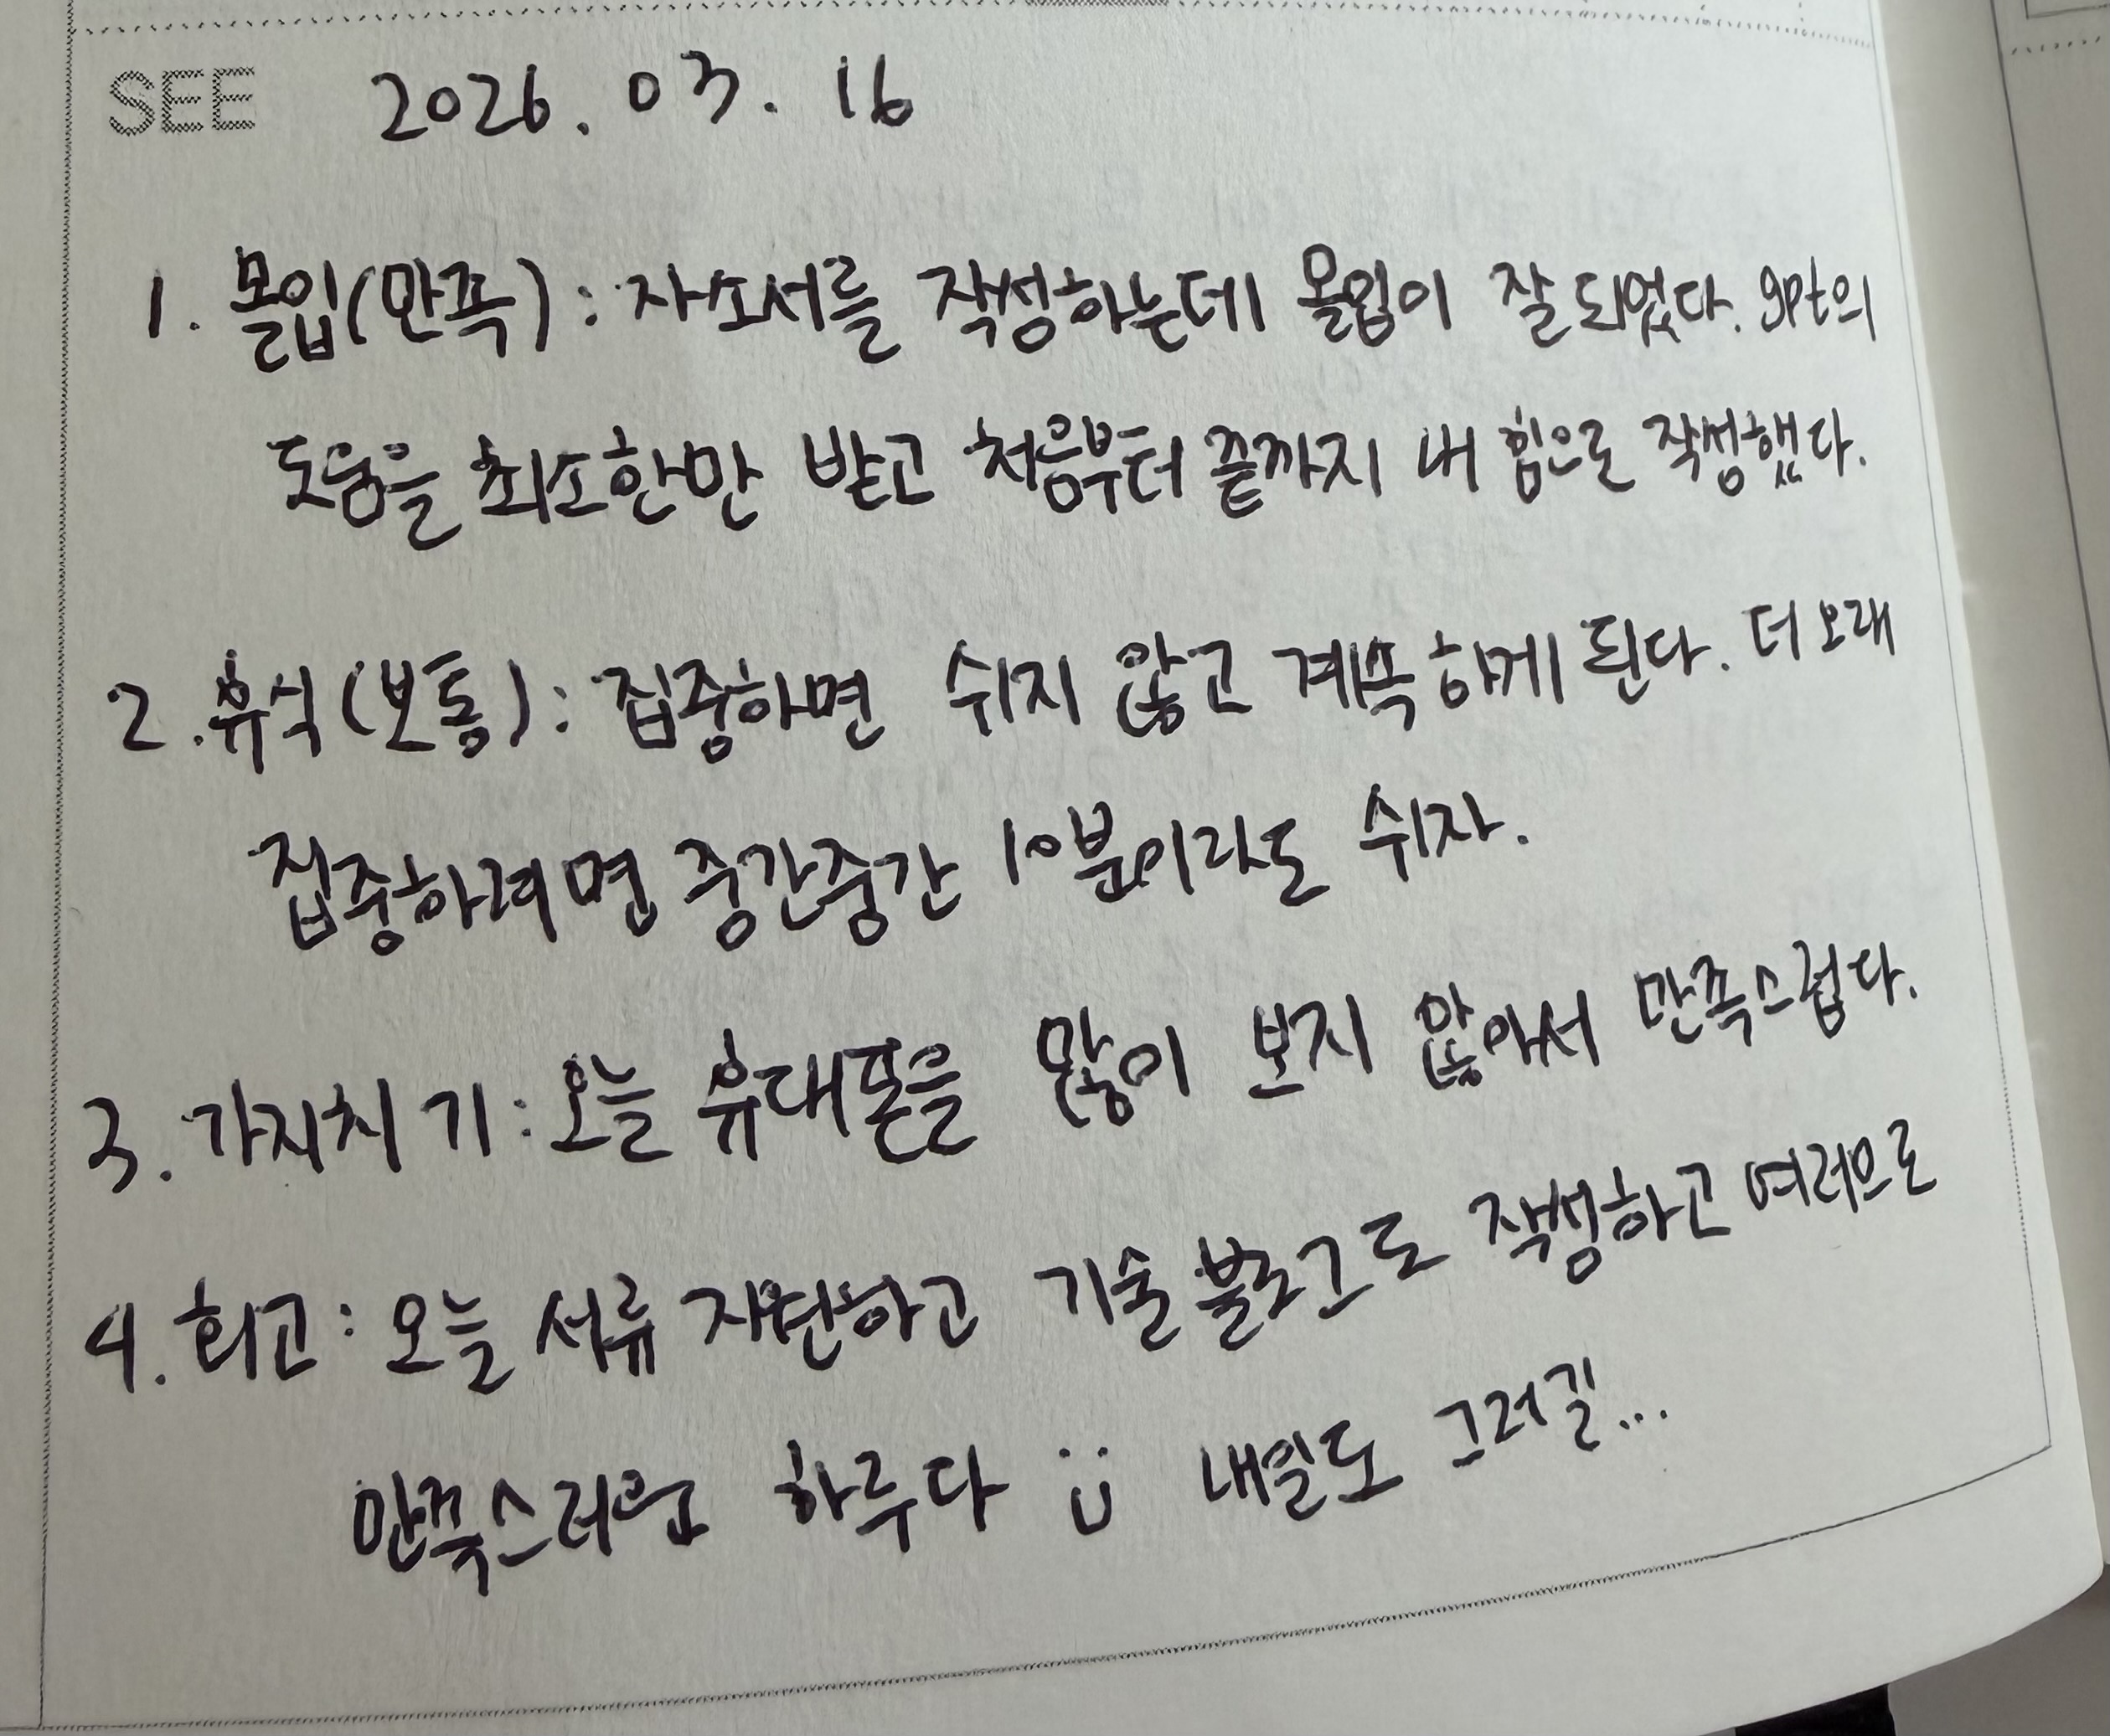 SEE 2026. 03. 16
1. 몰입(만족) : 자소서를 작성하는데 몰입이 잘 되었다. gpt의
도움을 최소한만 받고 처음부터 끝까지 내 힘으로 작성했다.
2. 휴식(보통) : 집중하면 쉬지 않고 계속 하게 된다. 더 오래
집중하려면 중간중간 10분이라도 쉬자.
3. 가지치기 : 오늘 휴대폰을 많이 보지 않아서 만족스럽다.
4. 회고 : 오늘 서류 지원하고 기술 블로그도 작성하고 여러으로
만족스러운 하루다 :) 내일도 그러길...